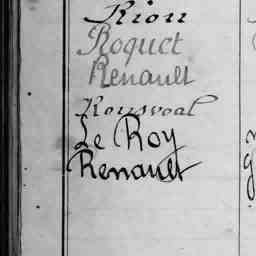 Rion
Roquet
Renault
Rousvoal
Le Roy
Renault